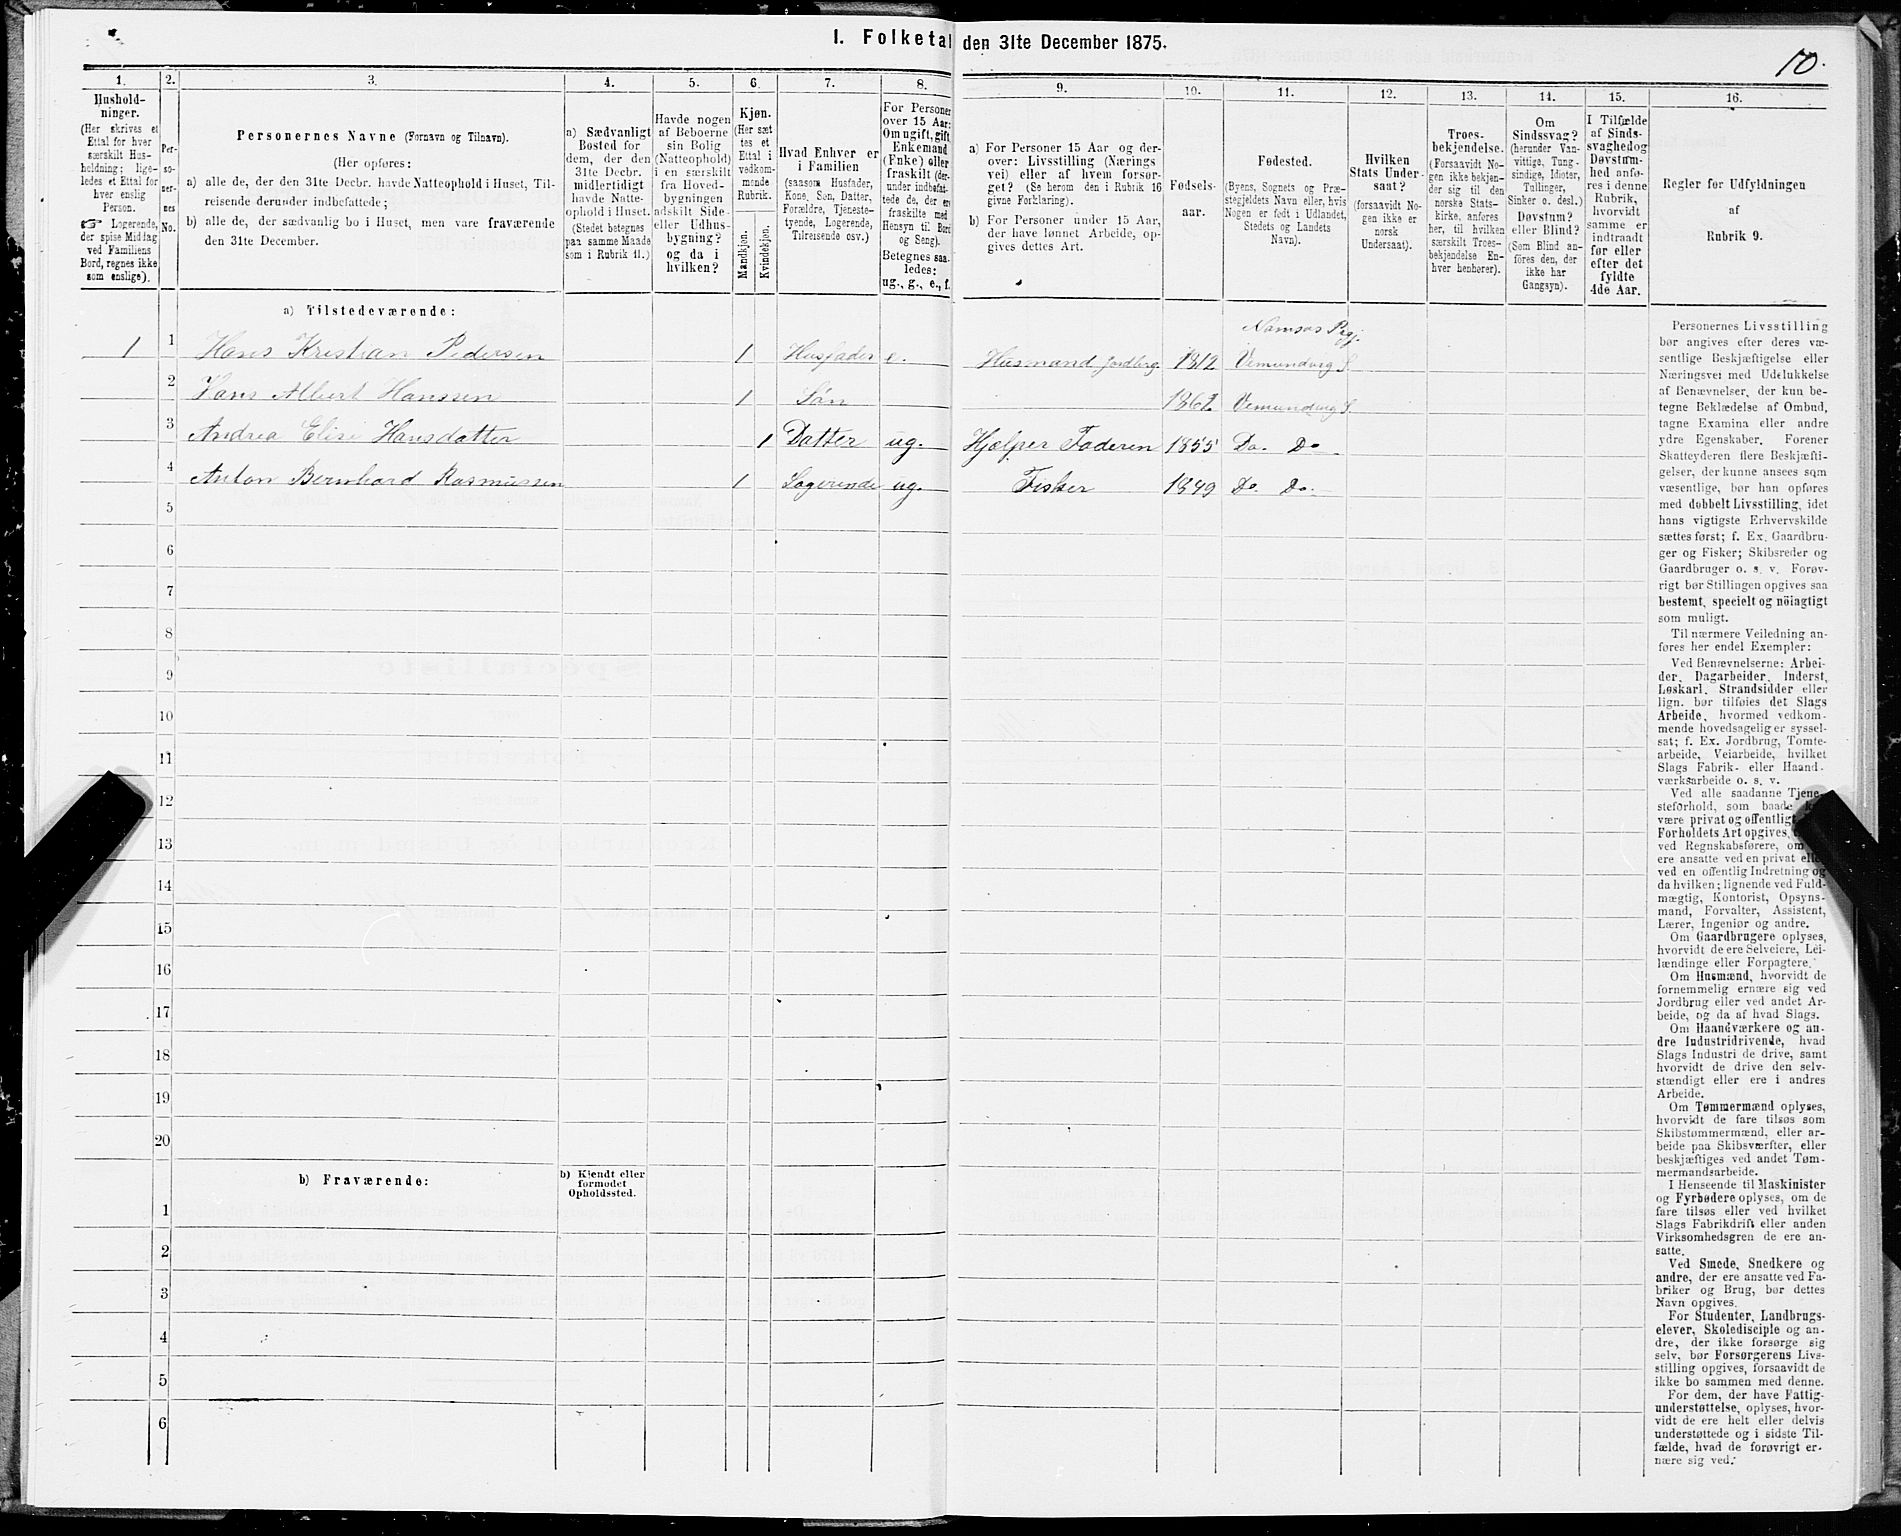 I. Folketal den 31te December 1875.
10.
1.
2.
3.
4.
5.
6.
7.
8.
9.
10.
11.
12.
13.
14.
15.
16.
Hushold-
ninger.
(Her skrives et
Ettal for hver
særskilt Hus-
holdning; lige-
ledes et Ettal for
hver enslig
Person.
☞ Logerende,
der spise Middag
ved Familiens
Bord, regnes ikke
som enslige).
Per-
so-
ner-
nes
No.
Personernes Navne (Fornavn og Tilnavn).
(Her opføres:
a) alle de, der den 31te Decbr. havde Natteophold i Huset, Til-
reisende derunder indbefattede;
b) alle de, der sædvanlig bo i Huset, men vare fraværende
den 31te December.
a) Sædvanligt
Bosted for
dem, der den
31te Decbr.
midlertidigt
havde Natte-
ophold i Huset.
(Stedet betegnes
paa samme Maade
som i Rubrik 11.)
Havde nogen
af Beboerne
sin Bolig
(Natteophold)
i en særskilt
fra Hoved-
bygningen
adskilt Side-
eller Udhus-
bygning?
og da i
hvilken?
Kjøn.
(Her sæt-
tes et
Ettal i
vedkom-
mende
Rubrik.
Mandkjøn.
Kvindekjøn.
Hvad Enhver er
i Familien
(saasom Husfader,
Kone, Søn, Datter,
Forældre, Tjeneste-
tyende, Logerende,
Tilreisende osv.)
For Personer
over 15 Aar:
Om ugift, gift,
Enkemand
(Enke) eller
fraskilt (der-
under indbefat-
tede de, der ere
fraskilte med
Hensyn til Bord
og Seng).
Betegnes saa-
ledes:
ug., g., e., f.
a) For Personer 15 Aar og der-
over: Livsstilling (Nærings-
vei) eller af hvem forsør-
get? (Se herom den i Rubrik 16
givne Forklaring).
b) For Personer under 15 Aar,
der have lønnet Arbeide, op-
gives dettes Art.
Fødsels-
aar.
Fødested.
(Byens, Sognets og Præ-
stegjeldets Navn eller, hvis
Nogen er født i Udlandet,
Stedets og Landets
Navn).
Hvilken
Stats Under-
saat?
(forsaavidt No-
gen ikke er
norsk
Undersaat).
Troes-
bekjendelse.
(Forsaavidt No-
gen ikke bekjen-
der sig til den
norske Stats-
kirke, anføres
her, til hvilken
særskilt Troes-
bekjendelse En-
hver henhører).
Om
Sindssvag?
(herunder Van-
vittige, Tung-
sindige, Idioter,
Tullinger,
Sinker o. desl.)
Døvstum?
eller Blind?
(Som Blind an-
føres den, der
ikke har
Gangsyn).
I Tilfælde
af Sinds-
svaghed og
Døvstum-
hed anfø-
res i denne
Rubrik,
hvorvidt
samme er
indtraadt
før eller
efter det
fyldte
4de Aar.
Regler for Udfyldningen
af
Rubrik 9.
a) Tilstedeværende:
Namsos Pgj.
1 1 Hans Kristian Pedersen 1 Husfader e. Husmand Jordbrg. 1812 Vemundvig S.
2 Hans Albert Hanssen 1 Søn 1862 Vemundvig S.
3 Andrea Elise Hansdatter 1 Datter ug. Hjælper Faderen 1855 Do. Do
4 Anton Bernhard Rasmussen 1 Logerende ug. Fisker 1849 Do. Do.
5
6
7
8
9
10
11
12
13
14
15
16
17
18
19
20
b) Fraværende:
b) Kjendt eller
formodet
Opholdssted.
1
2
3
4
5
6
Personernes Livsstilling
bør angives efter deres væ-
sentlige Beskjæftigelse eller
Næringsvei med Udelukkelse
af Benævnelser, der kun be-
tegne Beklædelse af Ombud,
tagne Examina eller andre
ydre Egenskaber. Forener
Skatteyderen flere Beskjæfti-
gelser, der kunne ansees som
væsentlige, bør han opføres
med dobbelt Livsstilling, idet
hans vigtigste Erhvervskilde
sættes først; f. Ex. Gaardbru-
ger og Fisker; Skibsreder og
Gaardbruger o. s. v. Forøv-
rigt bør Stillingen opgives saa
bestemt, specielt og nöiagtigt
som muligt.
Til nærmere Veiledning an-
føres her endel Exempler:
Ved Benævnelserne: Arbei-
der, Dagarbeider, Inderst,
Løskarl, Strandsidder eller
lign. bør tilføies det Slags
Arbeide, hvormed vedkom-
mende hovedsagelig er syssel-
sat; f. Ex. Jordbrug, Tomte-
arbeide, Veiarbeide, hvilket
Slags Fabrik- eller Haand-
værksarbeide o. s. v.
Ved alle saadanne Tjene-
steforhold, som baade
være privat og offentligt
Forholdets Art opgives,
ved Regnskabsførere, om
ere ansatte ved en privat eller
ved en offentlig Indretning og
da hvilken; lignende ved Fuld-
mægtig, Kontorist, Opsyns-
mand, Forvalter, Assistent,
Lærer, Ingeniør og andre.
Om Gaardbrugere oplyses,
hvorvidt de ere Selveiere, Lei-
lændinge eller Forpagtere.
Om Husmænd, hvorvidt de
fornemmelig ernære sig ved
Jordbrug eller ved andet Ar-
beide, og da af hvad Slags.
Om Haandværkere og an-
dre Industridrivende, hvad
Slags Industri de drive, samt
hvorvidt de drive den selv-
stændigt eller ere i andres
Arbeide.
Om Tømmermænd oplyses,
hvorvidt de fare tilsøs som
Skibstømmermænd, eller ar-
beide paa Skibsværfter, eller
beskjæftiges ved andet Tøm-
mermandsarbeide.
I Henseende til Maskinister
og Fyrbødere oplyses, om de
fare tilsøs eller ved hvilket
Slags Fabrikdrift eller anden
Virksomhedsgren de ere an-
satte.
Ved Smede, Snedkere og
andre, der ere ansatte ved Fa-
briker og Brug, bør dettes
Navn opgives.
For Studenter, Landbrugs-
elever, Skoledisciple og an-
dre, der ikke forsørge sig
selv, bør Forsørgerens Livs-
stilling opgives, forsaavidt de
ikke bo sammen med denne.
For dem, der have Fattig-
understøttelse, oplyses, hvor-
vidt de ere helt eller delvis
understøttede og i sidste Til-
fælde, hvad de forøvrigt er-
nære sig ved.